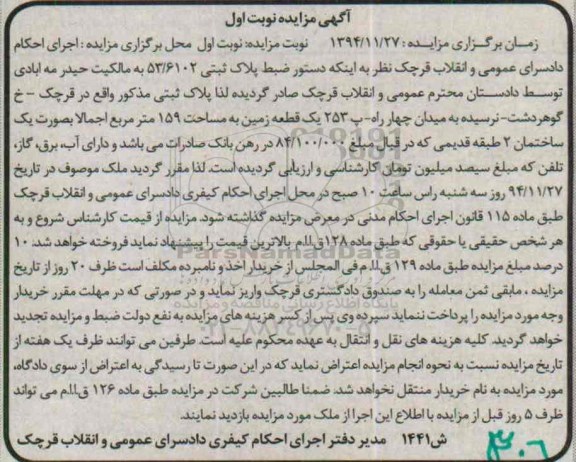 آگهی مزایده نوبت اول
زمـان برگـزاری مزایـده : ۱۳۹۴/۱۱/۲۷ نوبت مزایده: نوبت اول محل برگزاری مزایده : اجرای احکام
دادسرای عمومی و انقلاب قرچک نظر به اینکه دستور ضبط پلاک ثبتی ۵۳/۶۱۰۲ به مالکیت حیدر مه ابادی
توسط دادستان محترم عمومی و انقلاب قرچک صادر گردیده لذا پلاک ثبتی مذکور واقع در قرچک - خ
گوهردشت- نرسیده به میدان چهار راه-پ ۲۵۳ یک قطعه زمین به مساحت ۱۵۹ متر مربع اجمالا بصورت یک
ساختمان ۲ طبقه قدیمی که در قبال مبلغ ۸۴/۱۰۰/۰۰۰ در رهن بانک صادرات می باشد و دارای آب، برق، گاز،
تلفن که مبلغ سیصد میلیون تومان کارشناسی و ارزیابی گردیده است. لذا مقرر گردید ملک موصوف در تاریخ
۹۴/۱۱/۲۷ روز سه شنبه راس ساعت ۱۰ صبح در محل اجرای احکام کیفری دادسرای عمومی و انقلاب قرچک
طبق ماده ۱۱۵ قانون اجرای احکام مدنی در معرض مزایده گذاشته شود. مزایده از قیمت کارشناس شروع و به
هر شخص حقیقی یا حقوقی که طبق ماده ۱۲۸ ق.ا.ا.م بالاترین قیمت را پیشنهاد نماید فروخته خواهد شد. ۱۰
درصد مبلغ مزایده طبق ماده ۱۲۹ ق.ا.ا.م فی المجلس از خریدار اخذ و نامبرده مکلف است ظرف ۲۰ روز از تاریخ
مزایده ، مابقی ثمن معامله را به صندوق دادگستری قرچک واریز نماید و در صورتی که در مهلت مقرر خریدار
وجه مورد مزایده را پرداخت ننماید سپرده وی پس از کسر هزینه های مزایده به نفع دولت ضبط و مزایده تجدید
خواهد گردید. کلیه هزینه های نقل و انتقال به عهده محکوم علیه است. طرفین می توانند ظرف یک هفته از
تاریخ مزایده نسبت به نحوه انجام مزایده اعتراض نماید که در این صورت تا رسیدگی به اعتراض از سوی دادگاه،
مورد مزایده به نام خریدار منتقل نخواهد شد. ضمنا طالبین شرکت در مزایده طبق ماده ۱۲۶ ق.ا.ا.م می تواند
ظرف ۵ روز قبل از مزایده با اطلاع این اجرا از ملک مورد مزایده بازدید نمایند.
ش۱۴۴۱ مدیر دفتر اجرای احکام کیفری دادسرای عمومی و انقلاب قرچک